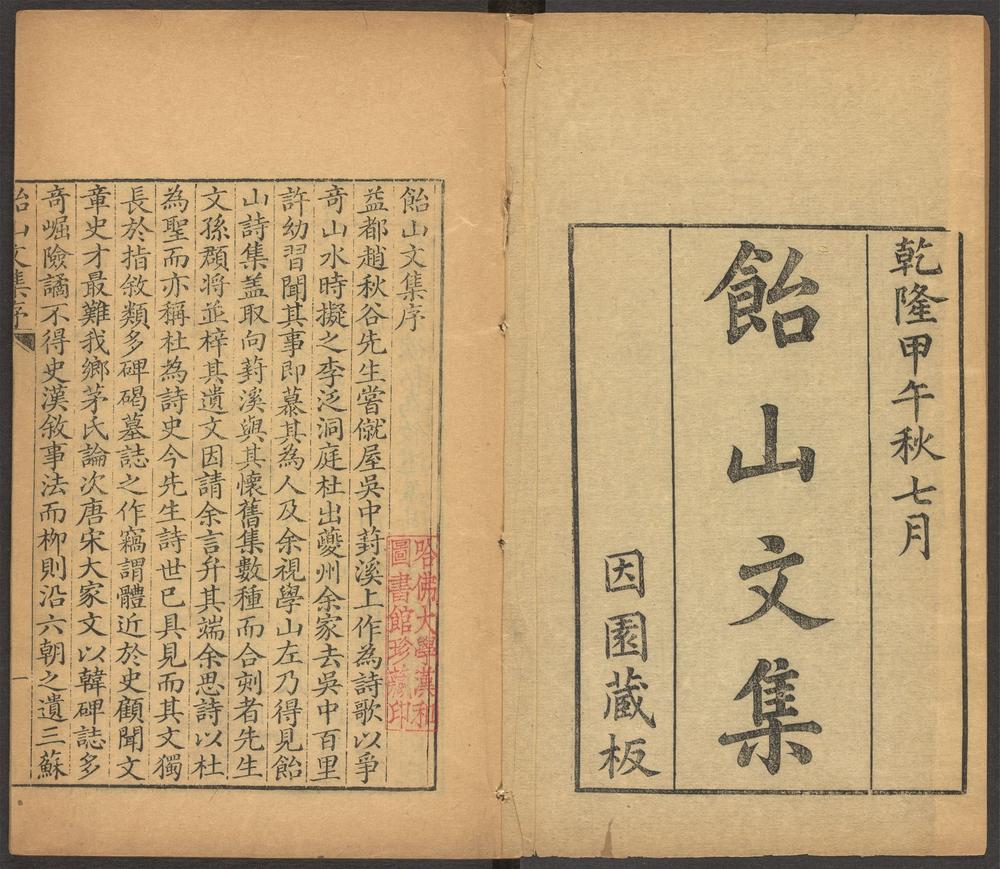 乾隆甲午秋七月
飴山文集
因園蔵板
飴山文集序
益都趙秋谷先生嘗僦屋吳中葑溪上作為詩歌以爭
奇山水時擬之李泛洞庭杜出夔州余家去吳中百里
許幼習聞其事即慕其為人及余視學山左乃得見飴
山詩集盖取向葑溪與其懷舊集數種而合刻者先生
文孫羣將並梓其遺文因請余言弁其端余思詩以杜
為聖而亦稱杜為詩史今先生詩世已具見而其文獨
長於指敘類多碑碣墓誌之作竊謂體近於史顧聞文
章史才最難我鄉茅氏論次唐宋大家文以韓碑誌多
竒崛險譎不得史漢敘事法而柳則沿六朝之遺三蘇
飴山文集序
一
哈佛大學漢和
圖書館珍藏印